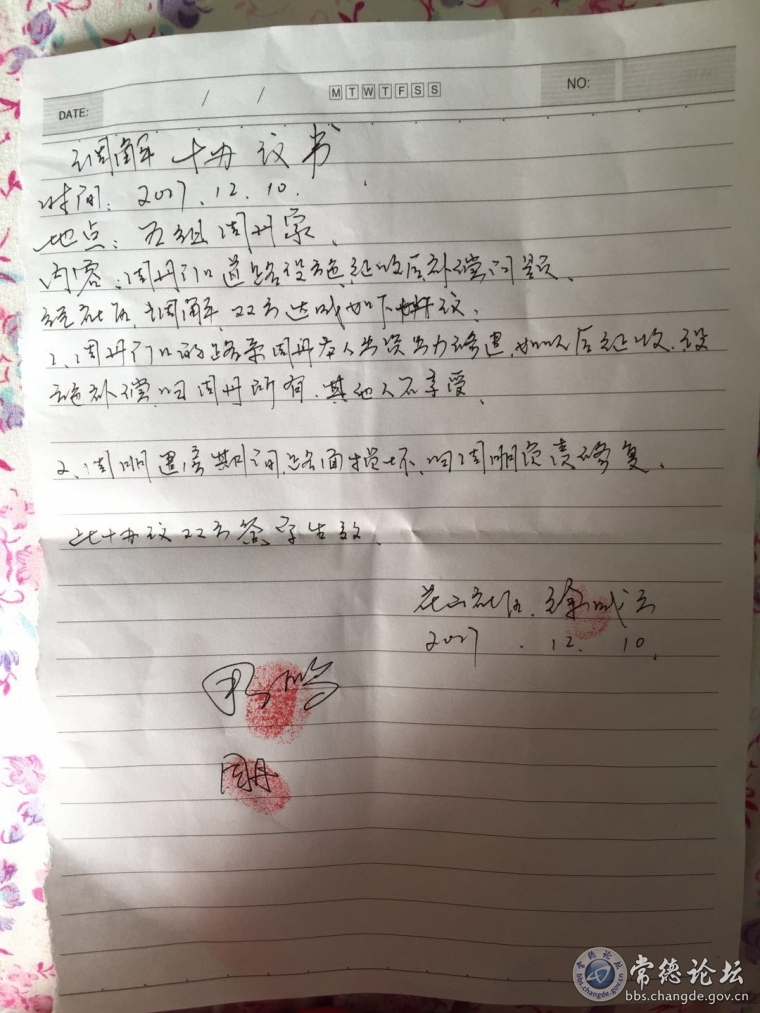 DATE: / / MTWTFSS NO:
调解协议书
时间: 2017.12.10.
地点: 五组周丹家.
内容:周丹门口道路设施,征收后补偿问题.
经社区,调解,双方达成如下协议:
1、周丹门口的路系周丹本人出资出力修建,如以后征收,设
施补偿,归周丹所有.其他人不享受.
2、周 建房期间,路面损坏,由周 负责修复.
此协议双方签字生效.
花山社区. 徐成云
2017.12.10.
周丹
常德论坛
bbs.changde.gov.cn